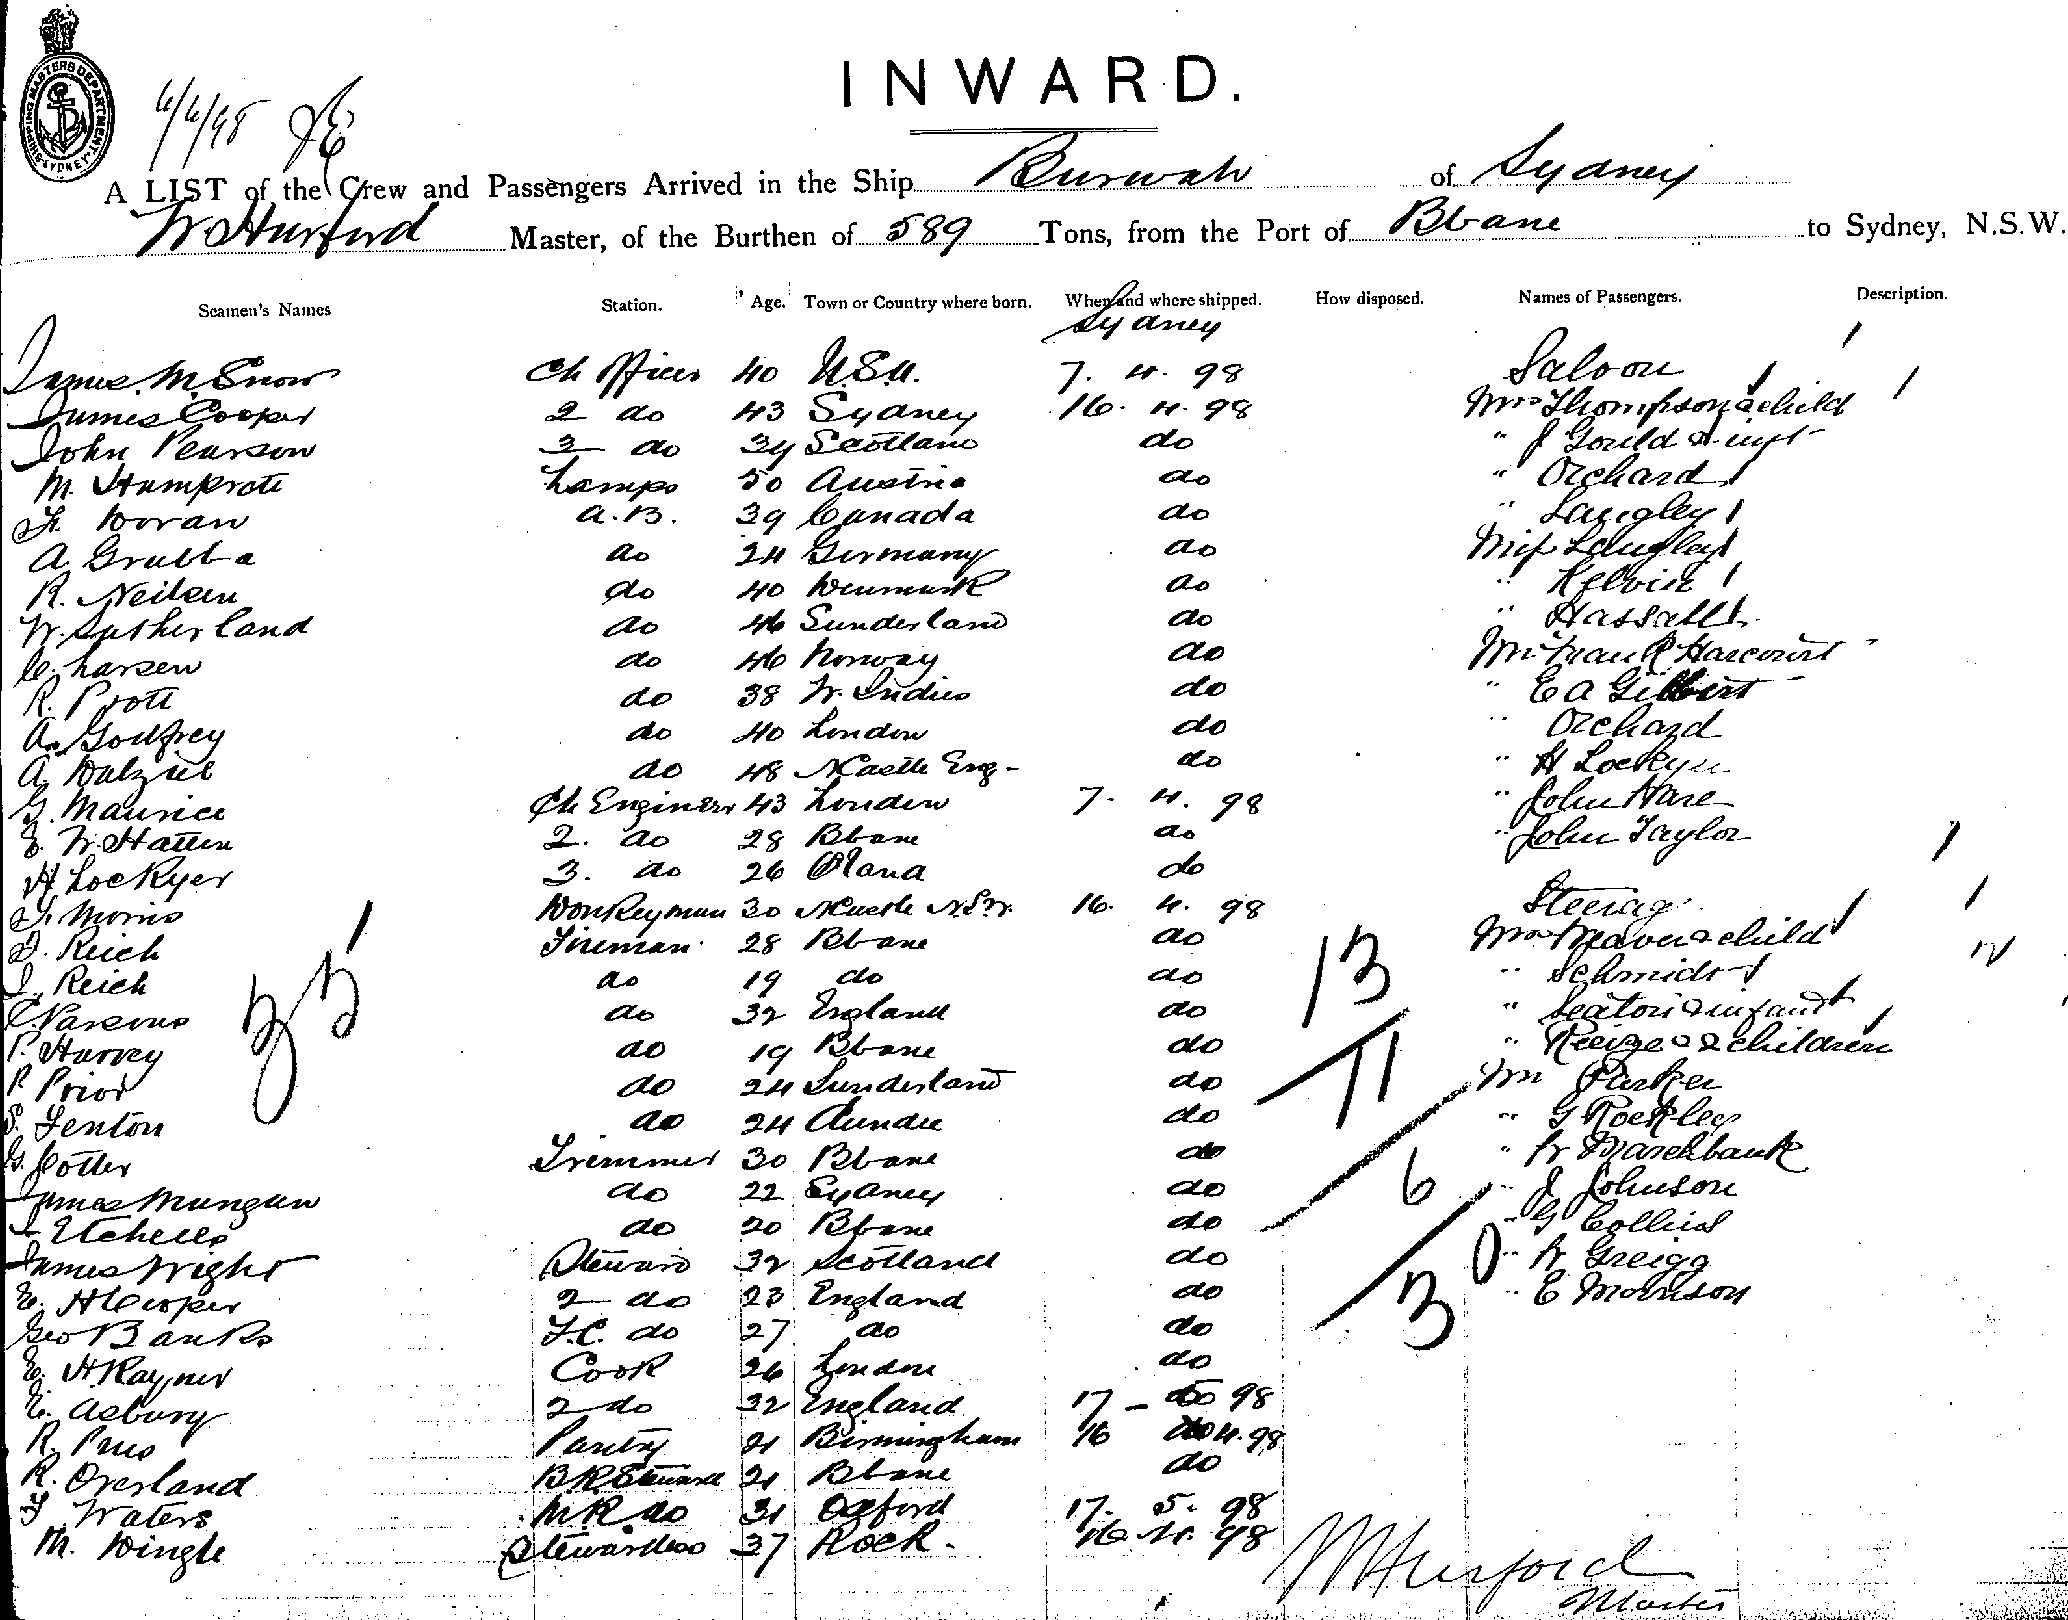 SHIPPING MASTERS DEPARTMENT. SYDNEY
6/6/98
INWARD.
A LIST of the Crew and Passengers Arrived in the Ship Burwah of Sydney
W Hurford Master, of the Burthen of 589 Tons, from the Port of Bbane to Sydney, N.S.W.
Seamen's Names Station. Age. Town or Country where born. When and where shipped. How disposed. Names of Passengers. Description.
Sydney
James M. Snow Ch Officer 40 U.S.A. 7. 4. 98 Saloon
James Cooper 2 do 43 Sydney 16. 4. 98 Mrs Thompson & child
John Pearson 3 do 34 Scotland do " J Gould & inft
M. Stamprote Lamps 50 Austria do " Orchard
F. Doran A.B. 39 Canada do " Langley
A Grubba do 24 Germany do Miss Langley
R. Neilsen do 40 Denmark do " Kelvin
W. Sutherland do 46 Sunderland do " Hassall
C. Larsen do 46 Norway do Mr Frank Harcourt
R. Prott do 38 W. Indies do " E A Gilbert
A. Godfrey do 40 London do " Orchard
A. Dalziel do 48 NCastle Eng- do " H Lockyer
G. Maurice Ch Engineer 43 London 7. 4. 98 " John Hare
E. W. Hatten 2. do 28 Bbane do " John Taylor
H. Lockyer 3. do 26 do
F. Morris Donkeyman 30 NCastle N.S.W. 16. 4. 98 Steerage
D. Reich Fireman 28 Bbane do Mrs Weaver & child
J. Reich do 19 do do " Schmidt
C. Parsons do 32 England do " Seaton & infant
P. Harvey do 19 Bbane do " & 2 children
P. Prior do 24 Sunderland do Mr Parker
S. Fenton do 24 Dundee do " G Rockley
G. Cotter Trimmer 30 Bbane do " W Marchbank
James Mungan do 22 Sydney do " J Johnson
Etchells do 20 Bbane do " G Collins
James Wright Steward 32 Scotland do " W Greigg
E. H Cooper 2 do 23 England do " E Morrison
Geo Banks F.C. do 27 do do
E. H Rayner Cook 26 London do
E. Asbury 2 do 32 England 17 - 5 98
R. Pantry 21 Birmingham 16 4. 98
R. Overland B R Steward 21 Bbane do
F. Waters M.R do 31 Oxford 17. 5. 98
M. Dingle Stewardess 37 Rock. 16. 4. 98
35
13
11
6
3
0
W Hurford
Master